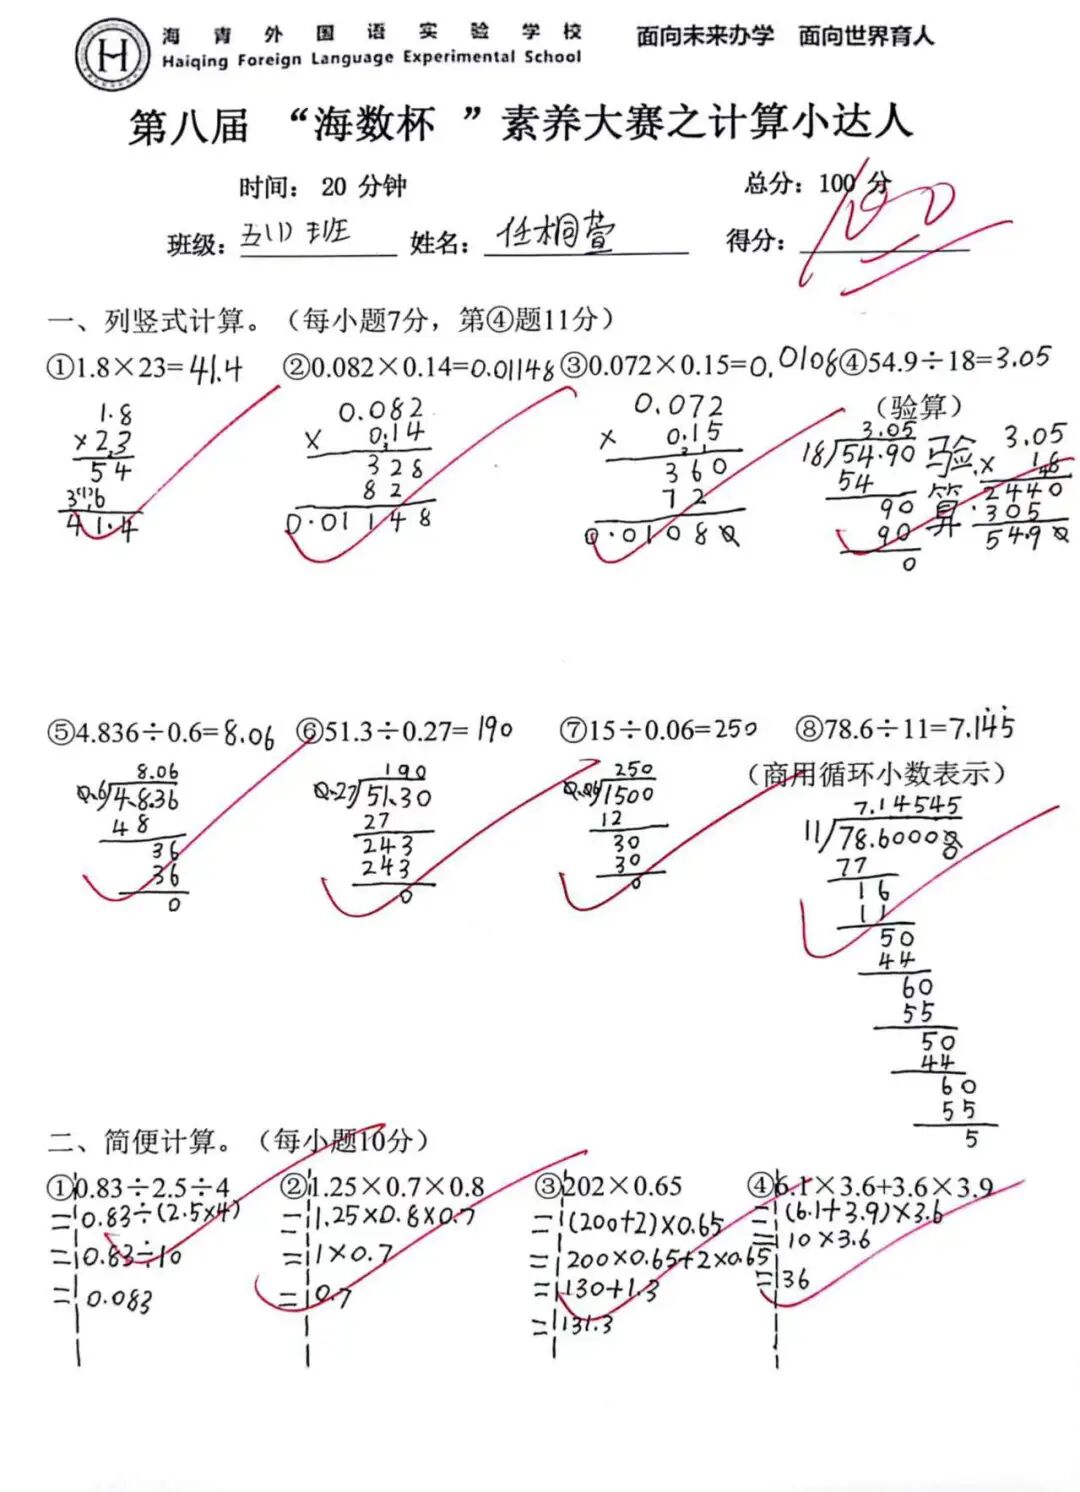 海青外国语实验学校 面向未来办学 面向世界育人
Haiqing Foreign Language Experimental School
第八届 “海数杯 ”素养大赛之计算小达人
时间： 20 分钟 总分：100 分
班级：五(1)班 姓名：任桐萱 得分：100
一、列竖式计算。（每小题7分，第④题11分）
①1.8×23=41.4 ②0.082×0.14=0.01148 ③0.072×0.15=0.0108 ④54.9÷18=3.05
（验算）
1.8 0.082 0.072 3.05 3.05
×2.3 × 0.14 × 0.15 18 54.90 验 × 18
54 328 360 54 算 2440
36 82 72 90 305
41.4 0.01148 0.01080 90 54.90
0
⑤4.836÷0.6=8.06 ⑥51.3÷0.27=190 ⑦15÷0.06=250 ⑧78.6÷11=7.14̇5̇
（商用循环小数表示）
8.06 190 250 7.14545
0.6 4.8.36 0.27 51.30 0.06 1500 11 78.60000
48 27 12 77
36 243 30 16
36 243 30 11
0 0 0 50
44
60
55
50
44
60
55
5
二、简便计算。（每小题10分）
①0.83÷2.5÷4 ②1.25×0.7×0.8 ③202×0.65 ④6.1×3.6+3.6×3.9
=0.83÷(2.5×4) =1.25×0.8×0.7 =(200+2)×0.65 =(6.1+3.9)×3.6
=0.83÷10 =1×0.7 =200×0.65+2×0.65 =10×3.6
=0.083 =0.7 =130+1.3 =36
=131.3